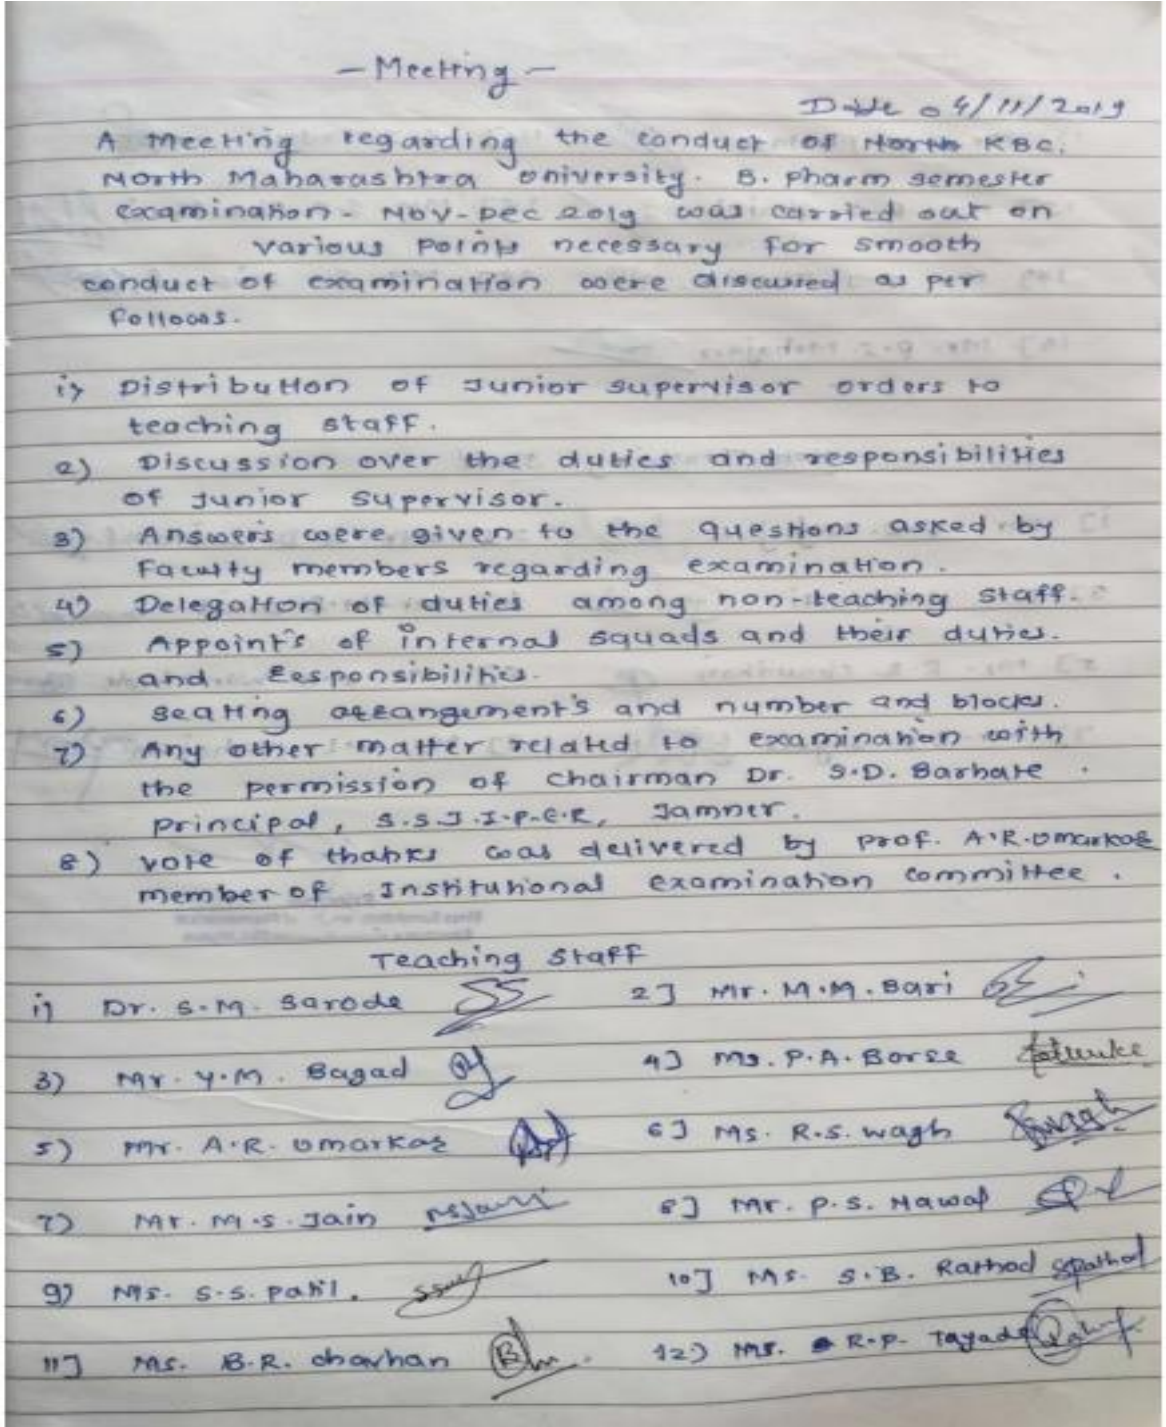 - Meeting -
Date 04/11/2019
A Meeting regarding the conduct of North KBC.
North Maharashtra University. B. Pharm semester
examination - Nov-Dec 2019 was carried out on
various points necessary for smooth
conduct of examination were discussed as per
follows.
1) Distribution of Junior supervisor orders to
teaching staff.
2) Discussion over the duties and responsibilities
of Junior supervisor.
3) Answers were given to the questions asked by
Faculty members regarding examination.
4) Delegation of duties among non-teaching staff.
5) Appoint's of internal squads and their duties.
and Responsibilities.
6) Seating arrangement's and number and blocks.
7) Any other matter related to examination with
the permission of chairman Dr. S.D. Barhate.
principal, S.S.J.I.P.E.R, Jamner.
8) vote of thanks was delivered by prof. A.R. Umarkar
member of Institutional examination committee.
Teaching staff
1) Dr. S.M. Sarode 2] Mr. M.M. Bari
3) Mr. Y.M. Bagad 4] Ms. P.A. Borse
5) Mr. A.R. Umarkar 6] Ms. R.S. Wagh
7) Mr. M.S. Jain 8] Mr. P.S. Nawal
9) Ms. S.S. Patil. 10] Ms. S.B. Rathod
11] Ms. B.R. Chavhan 12) Ms. R.P. Tayade